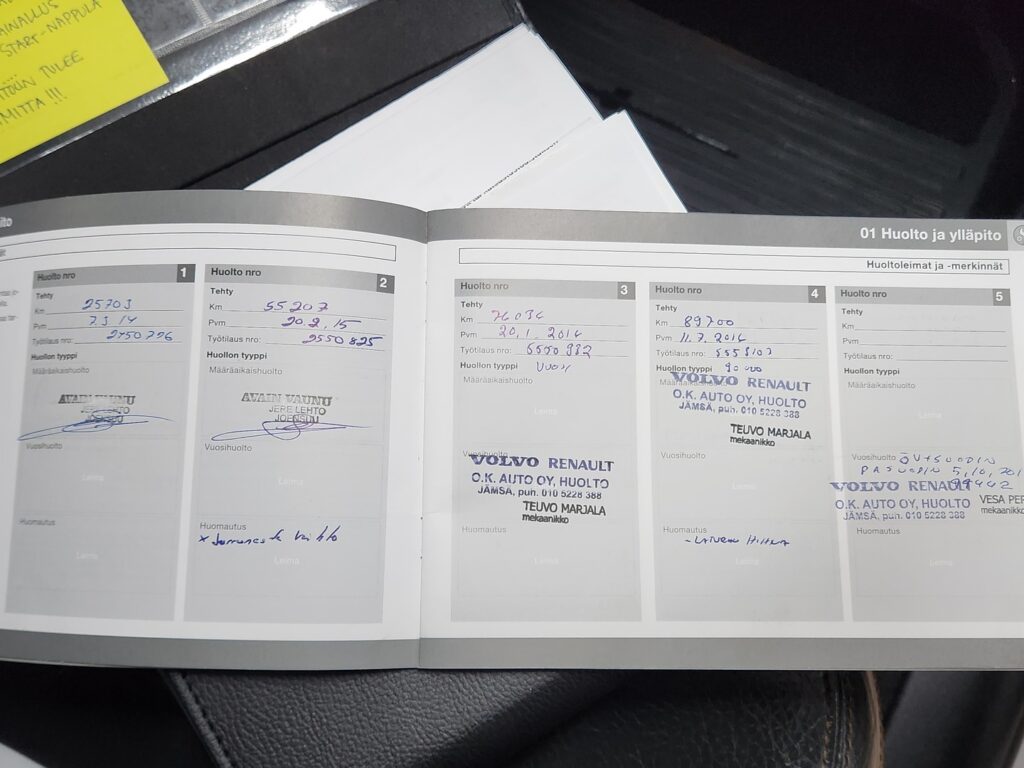 AINALLUS
START-NAPPULA
TULEE
MITTA !!!
01 Huolto ja ylläpito
Huoltoleimat ja -merkinnät
Huolto nro 1
Tehty
Km 25703
Pvm 7 3 14
Työtilaus nro: 2450796
Huollon tyyppi
Määräaikaishuolto
AVAIN VAUNU
JERE LEHTO
JOENSUU
Vuosihuolto
Leima
Huomautus
Leima
Huolto nro 2
Tehty
Km 55207
Pvm 20.2.15
Työtilaus nro: 2550825
Huollon tyyppi
Määräaikaishuolto
AVAIN VAUNU
JERE LEHTO
JOENSUU
Vuosihuolto
Leima
Huomautus
x Jarruneste vaihto
Leima
Huolto nro 3
Tehty
Km
Pvm 20.1.2016
Työtilaus nro:
Huollon tyyppi Vuosi
Määräaikaishuolto
Leima
Vuosihuolto
VOLVO RENAULT
O.K. AUTO OY, HUOLTO
JÄMSÄ, puh. 010 5228 388
TEUVO MARJALA
mekaanikko
Huomautus
Leima
Huolto nro 4
Tehty
Km 89700
Pvm 11.7.2016
Työtilaus nro: 5558103
Huollon tyyppi 90 000
Määräaikaishuolto
VOLVO RENAULT
O.K. AUTO OY, HUOLTO
JÄMSÄ, puh. 010 5228 388
TEUVO MARJALA
mekaanikko
Vuosihuolto
Leima
Huomautus
Leima
Huolto nro 5
Tehty
Km
Pvm
Työtilaus nro:
Huollon tyyppi
Määräaikaishuolto
Leima
Vuosihuolto
5.10.201
VOLVO RENAULT
O.K. AUTO OY, HUOLTO
JÄMSÄ, puh. 010 5228 388
VESA PE
mekaanikko
Huomautus
Leima